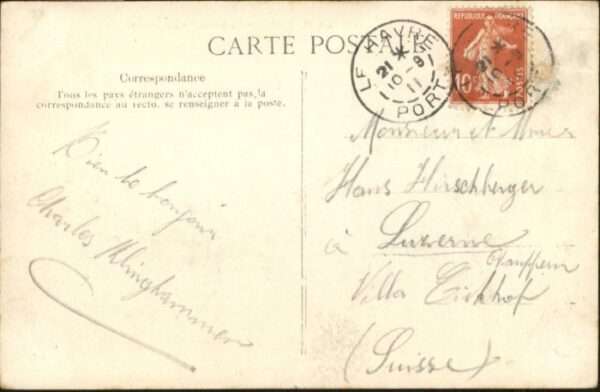 CARTE POSTALE
Correspondance
Tous les pays étrangers n'acceptent pas la
correspondance au recto, se renseigner à la poste.
Bien le bonjour
Charles Klinghammer
LE HAVRE
21 *
10 - 9
11
PORT
REPUBLIQUE FRANÇAISE
10
21 *
PORT
Monsieur et Mme
Hans Hirschberger
à Luzerne
Villa Eichhof
(Suisse)